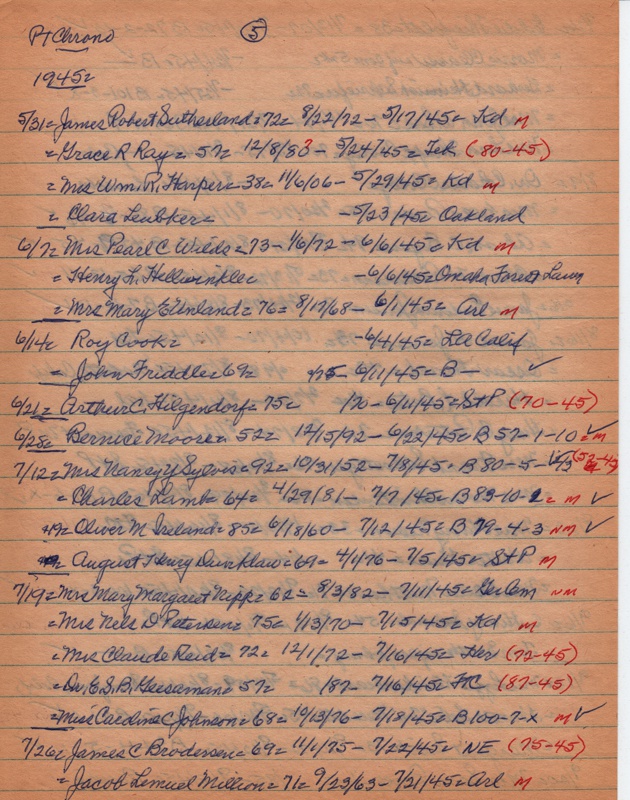 Pt Chrono ⑤
1945=
5/31= James Robert Sutherland= 72= 8/22/72 - 5/17/45= Kd m
= Grace R Ray= 57= 12/8/83 - 5/24/45= Feb (80-45)
= Mrs Wm. R. Harper= 38= 11/6/06 - 5/29/45= Kd m
= Clara Leubker= - 5/23/45= Oakland
6/7= Mrs Pearl C Wields= 73 - 1/6/72 - 6/6/45= Kd m
= Henry L. Hellwinkle= - 6/6/45= Omaha Forest Lawn
= Mrs Mary E Unland= 76= 8/17/68 - 6/1/45= Arl m
6/14= Roy Cook= - 6/4/45= LA Calif
= John Friddle= 69= /75 - 6/11/45= B — ✓
6/21= Arthur C, Hilgendorf= 75= /70 - 6/11/45= St P (70-45)
6/25= Bernice Moore= 52= 12/15/92 - 6/22/45= B 57-1-10 = m ✓
7/12= Mrs Nancy Y Sylvis= 92= 10/31/52 - 7/8/45= B 80-5- (52-45)
= Charles Lamb= 64= 4/29/81 - 7/7/45= B 83-10-2 = m ✓
19= Oliver M Ireland= 85= 6/18/60 - 7/12/45= B 79-4-3 nm ✓
= August Henry Dunklau= 69= 4/1/76 - 7/5/45= St P m
7/19= Mrs Mary Margaret Nipp= 62= 8/3/82 - 7/11/45= Ger Cem nm
= Mrs Nels D Petersen= 75= 1/13/70 - 7/15/45= Kd m
= Mrs Claude Reid= 72= 12/1/72 - 7/16/45= Her (72-45)
= Dr. E. S. B. Geesaman= 57= /87 - 7/16/45= FC (87-45)
= Miss Caroline C Johnson= 68= 10/13/76 - 7/18/45= B 100-7-x m ✓
7/26= James C Brodersen= 69= 11/1/75 - 7/22/45= NE (75-45)
= Jacob Lemuel Million= 71= 9/23/63 - 7/21/45= Arl m